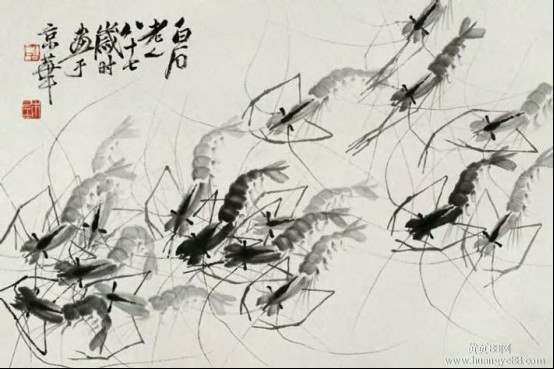 白石
老人
八十七
歲时
画于
京華
黄页88网
www.huangye88.com